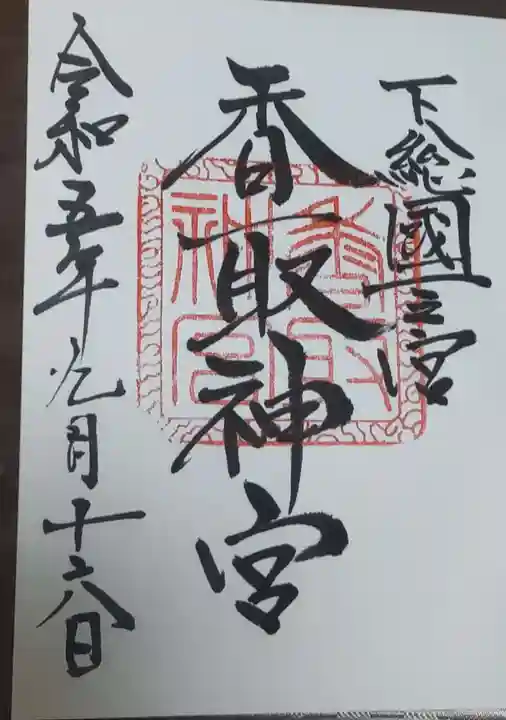 下総國一之宮
香取神宮
香取神宮
令和五年九月十六日